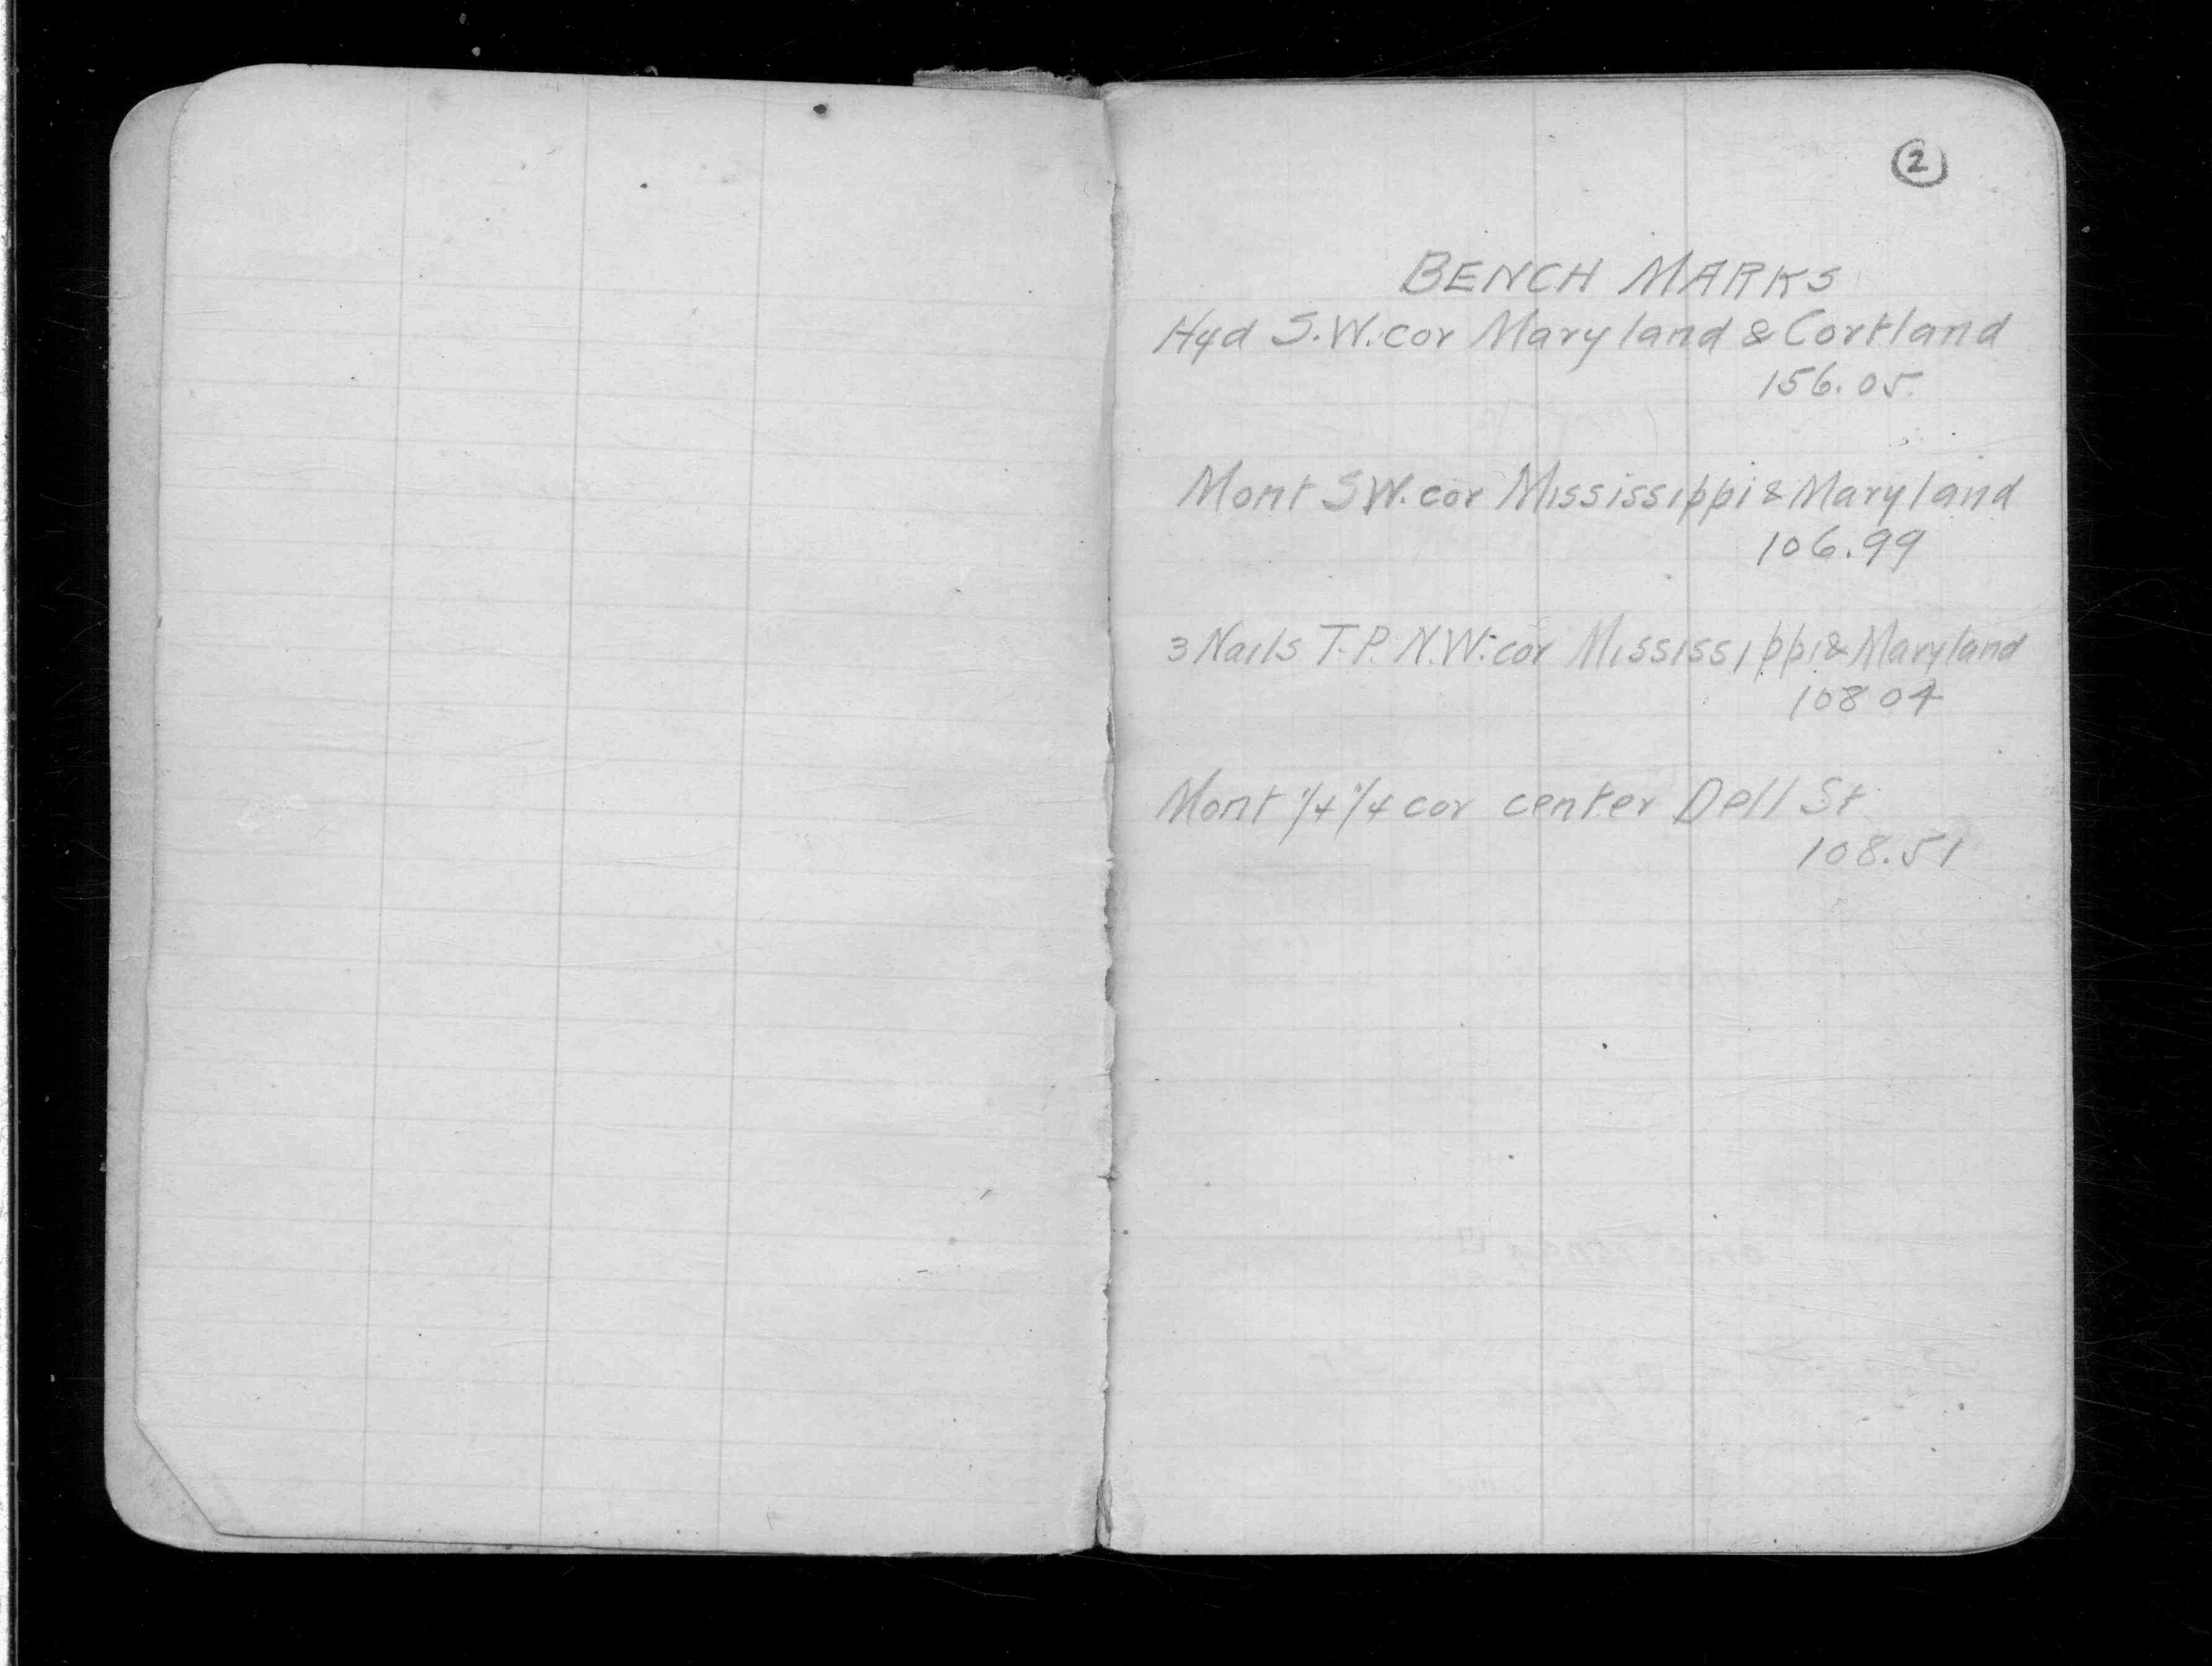 2
BENCH MARKS
Hyd S.W. cor Maryland & Cortland
156.05
Mont SW. cor Mississippi & Maryland
106.99
3 Nails T.P. N.W. cor Mississippi & Maryland
108 04
Mont 1/4 1/4 cor center Dell St.
108.51